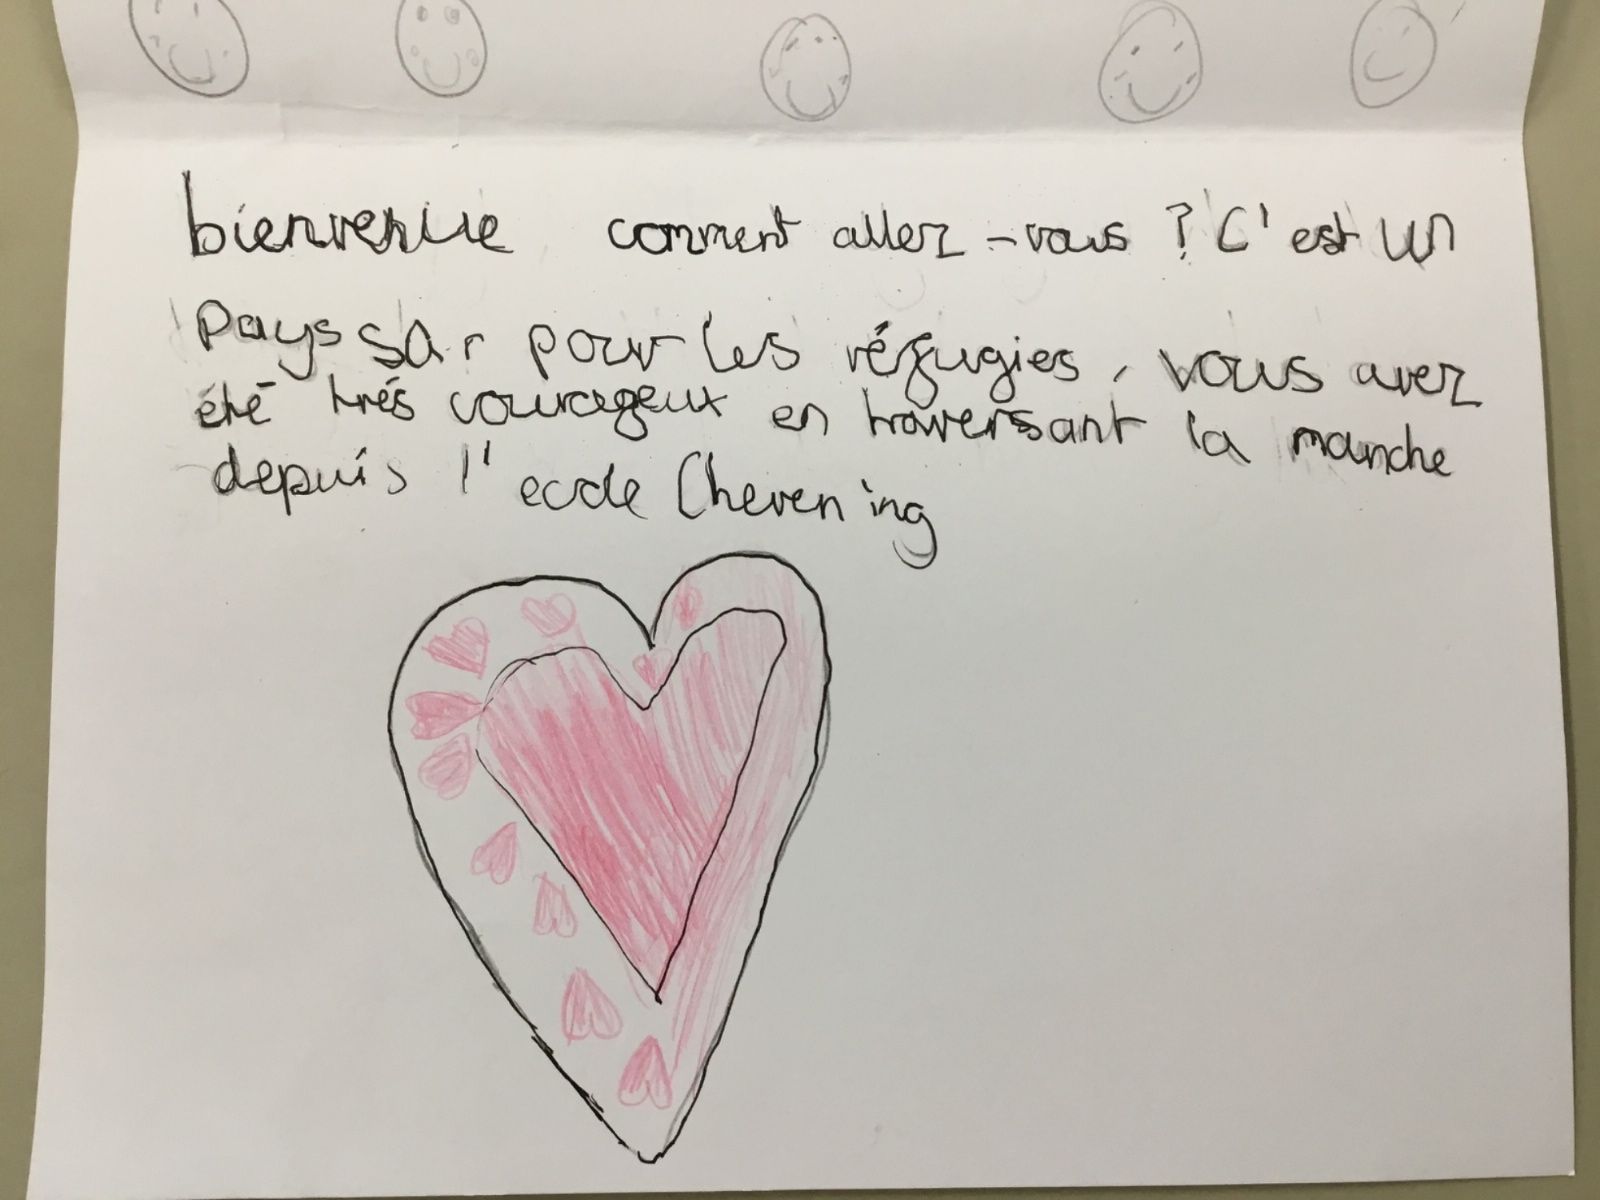 bienvenue comment allez-vous ? C'est un
pays sûr pour les réfugies, vous avez
été trés courageux en traversant la manche
depuis l'ecole Chevening